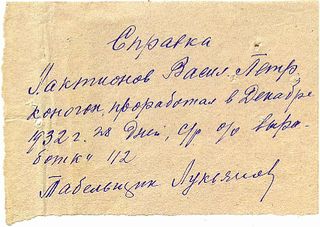 Справка
Лактионов Васил. Петр.
коногон, проработал в Декабре
1932 г. 28 дней, с/р % выра-
ботки 112
Табельщик Лукьянов